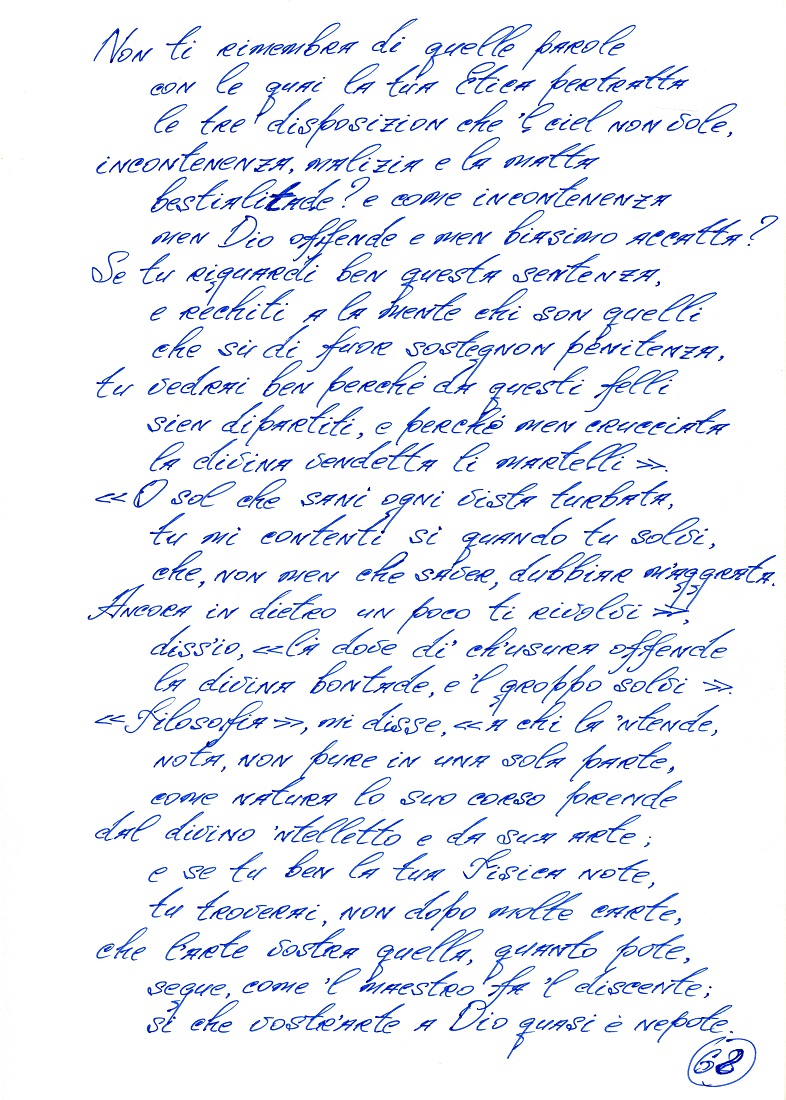 Non ti rimembra di quelle parole
con le quai la tua Etica pertratta
le tre disposizion che 'l ciel non vole,
incontenenza, malizia e la matta
bestialitade? e come incontenenza
men Dio offende e men biasimo accatta?
Se tu riguardi ben questa sentenza,
e rechiti a la mente chi son quelli
che su di fuor sostegnon penitenza,
tu vedrai ben perché da questi felli
sien dipartiti, e perché men crucciata
la divina vendetta li martelli».
«O sol che sani ogni vista turbata,
tu mi contenti sì quando tu solvi,
che, non men che saver, dubbiar m'aggrata.
Ancora in dietro un poco ti rivolvi»,
diss'io, «là dove di' ch'usura offende
la divina bontade, e 'l groppo solvi».
«Filosofia», mi disse, «a chi la 'ntende,
nota, non pure in una sola parte,
come natura lo suo corso prende
dal divino 'ntelletto e da sua arte;
e se tu ben la tua Fisica note,
tu troverai, non dopo molte carte,
che l'arte vostra quella, quanto pote,
segue, come 'l maestro fa 'l discente;
sì che vostr'arte a Dio quasi è nepote.
68